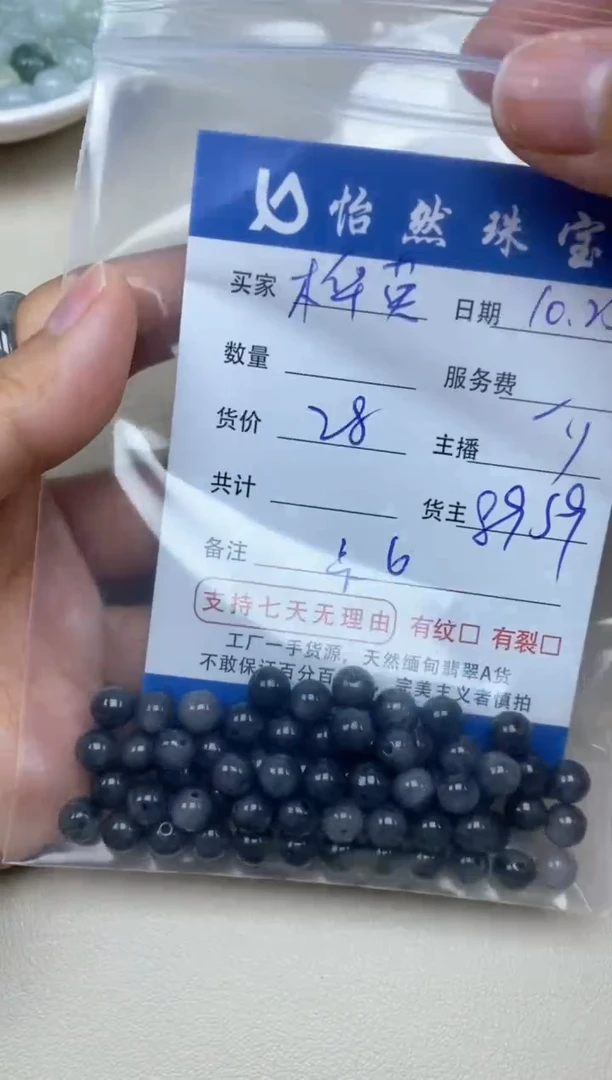 怡然珠宝
买家 桦英 日期 10.2
数量 服务费
货价 28 主播 y
共计 货主 8959
备注 6
支持七天无理由 有纹□ 有裂□
工厂一手货源,天然缅甸翡翠A货
不敢保证百分百 完美主义者慎拍